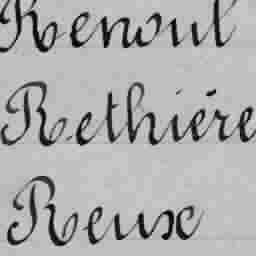 Renoul
Rethiére
Reux